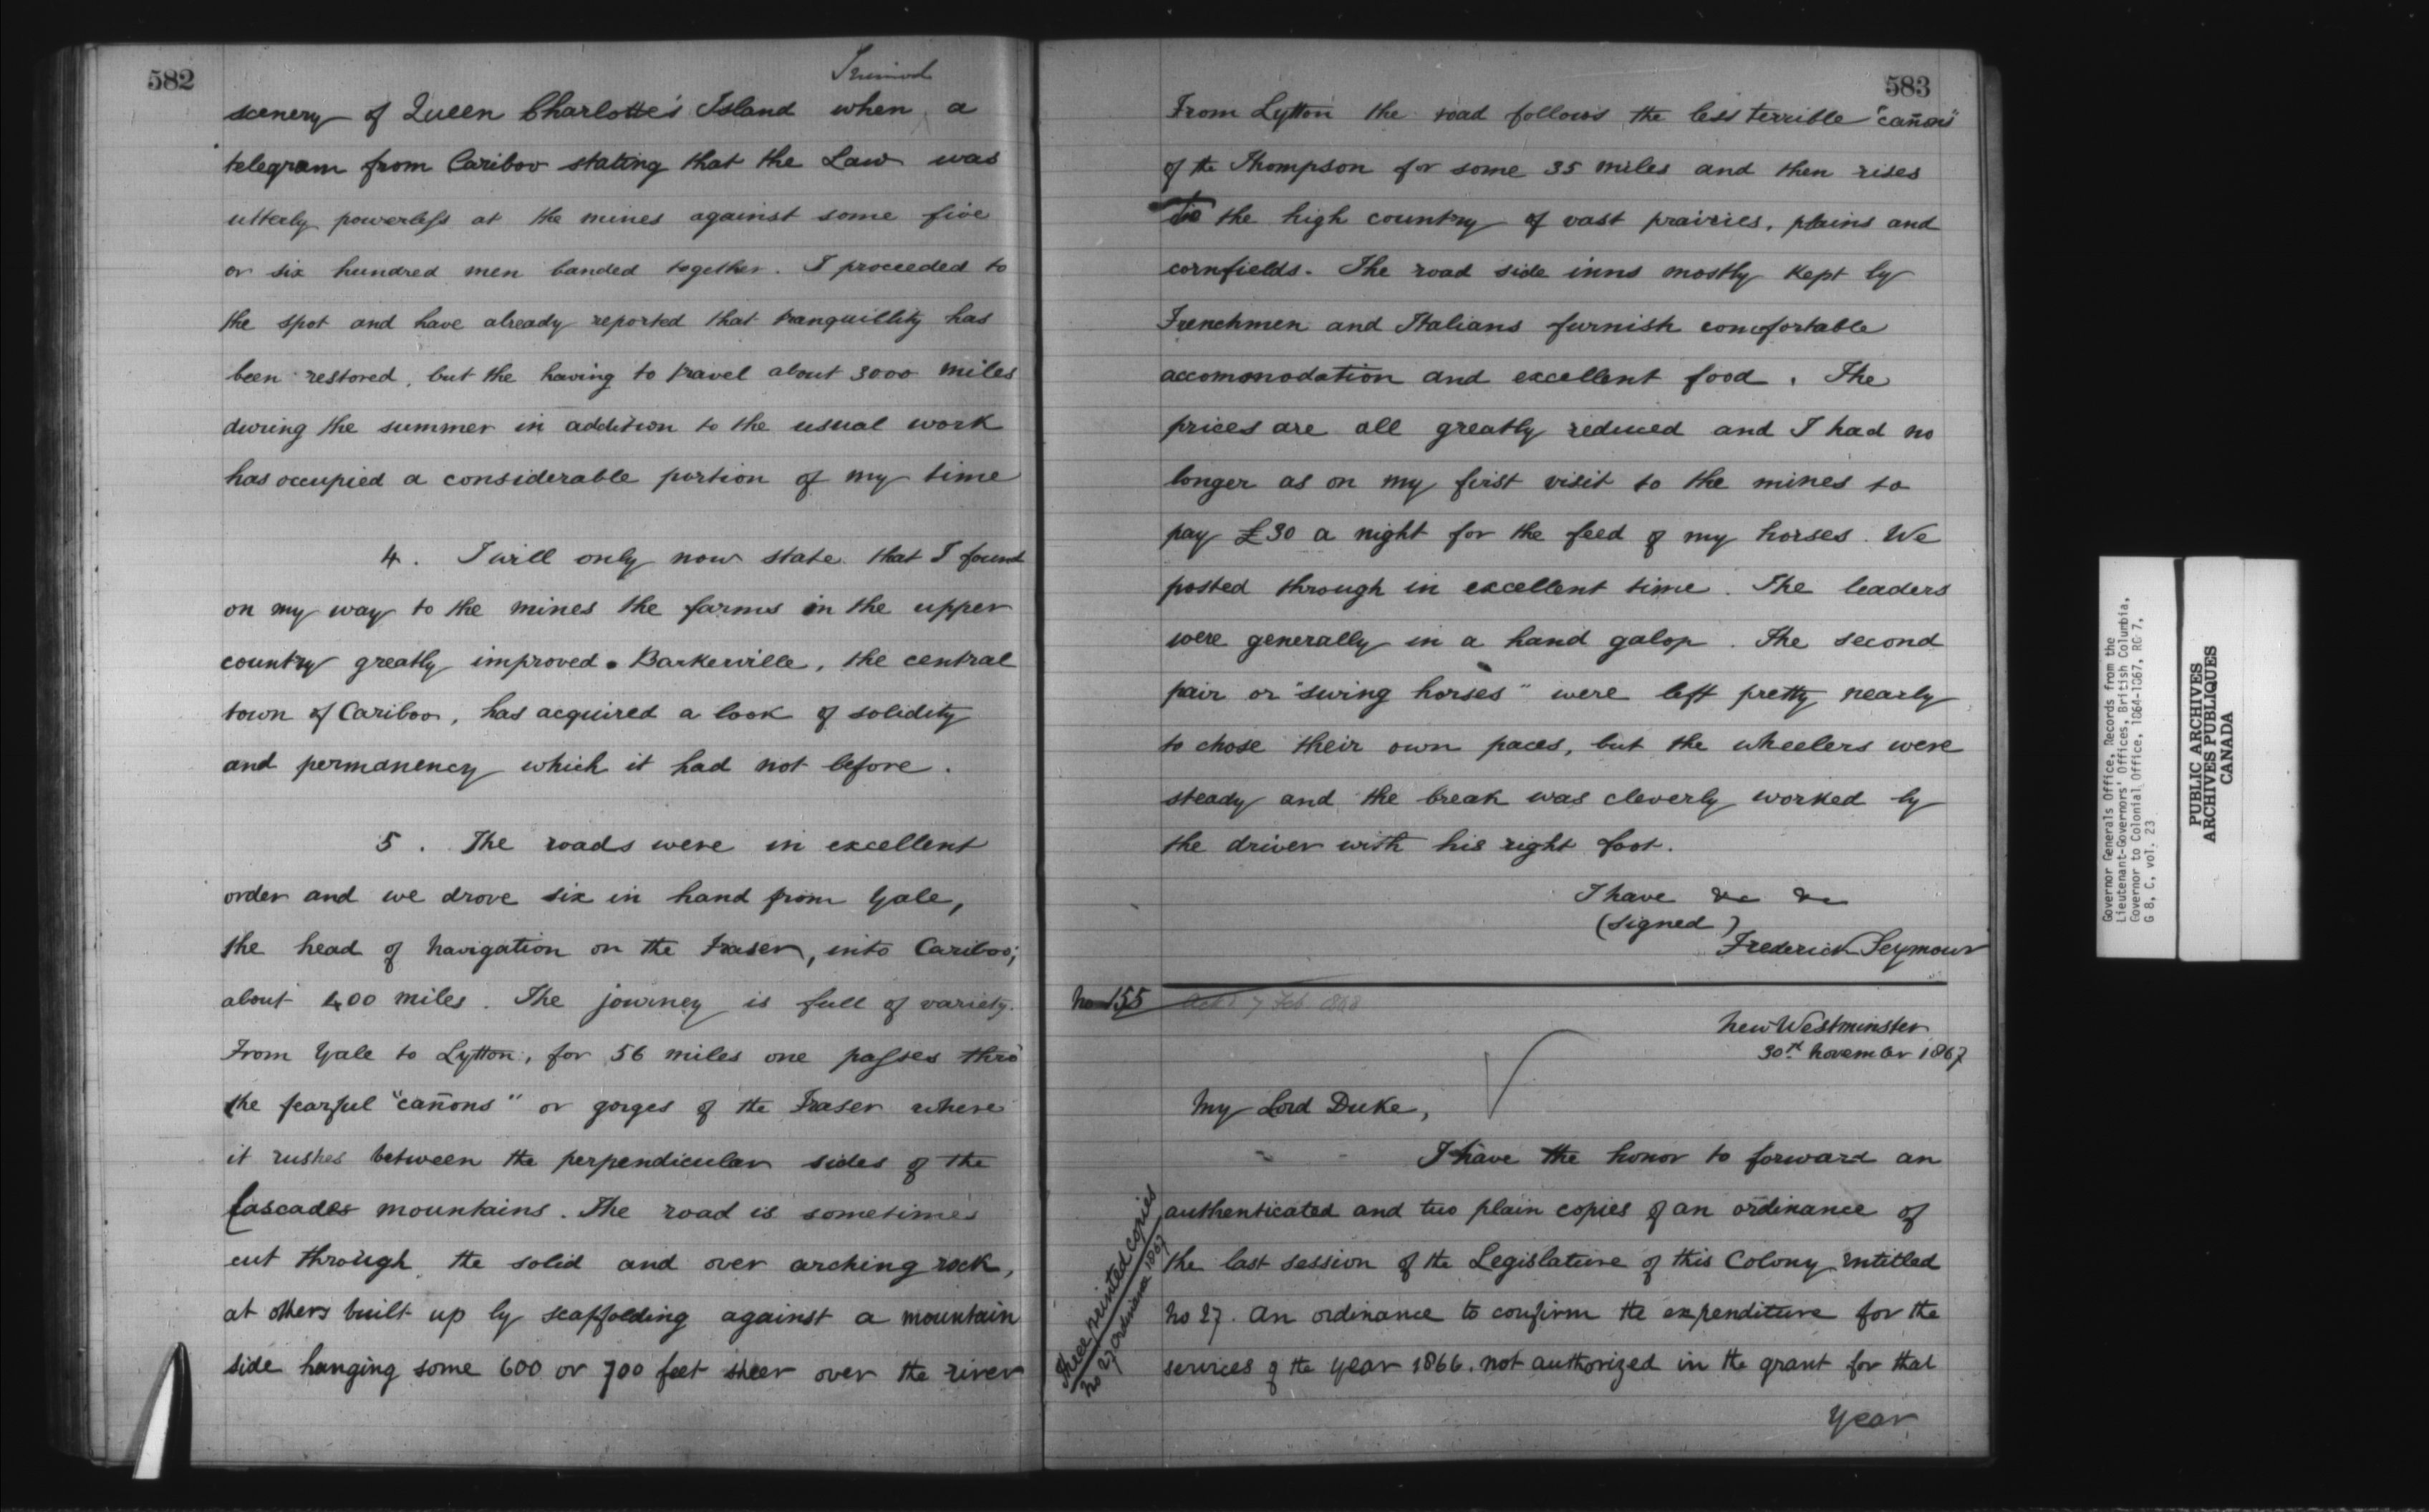 582
I received
scenery of Queen Charlotte's Island when a
telegram from Cariboo stating that the Law was
utterly powerless at the mines against some five
or six hundred men banded together. I proceeded to
the spot and have already reported that tranquillity has
been restored, but the having to travel about 3000 miles
during the summer in addition to the usual work
has occupied a considerable portion of my time
4. I will only now state that I found
on my way to the mines the farms in the upper
country greatly improved. Barkerville, the central
town of Cariboo, has acquired a look of solidity
and permanency which it had not before.
5. The roads were in excellent
order and we drove six in hand from Yale,
the head of navigation on the Fraser, into Cariboo;
about 400 miles. The journey is full of variety.
From Yale to Lytton, for 56 miles one passes thro'
the fearful "cañons" or gorges of the Fraser where
it rushes between the perpendicular sides of the
Cascades mountains. The road is sometimes
cut through the solid and over arching rock,
at others built up by scaffolding against a mountain
side hanging some 600 or 700 feet sheer over the river
583
From Lytton the road follows the less terrible "cañons"
of the Thompson for some 35 miles and then rises
to the high country of vast prairies, plains and
cornfields. The road side inns mostly kept by
Frenchmen and Italians furnish comfortable
accommodation and excellent food. The
prices are all greatly reduced and I had no
longer as on my first visit to the mines to
pay £30 a night for the feed of my horses. We
posted through in excellent time. The leaders
were generally in a hand galop. The second
pair or "swing horses" were left pretty nearly
to chose their own paces, but the wheelers were
steady and the break was cleverly worked by
the driver with his right foot.
I have &c &c
(signed)
Frederick Seymour
No 155
Ackd 7 Feb 1868
New Westminster
30th November 1867
My Lord Duke,
I have the honor to forward an
authenticated and two plain copies of an ordinance of
the last session of the Legislature of this Colony intitled
No 27. An ordinance to confirm the expenditure for the
services of the year 1866. not authorized in the grant for that
Year
Three printed copies
No 27 Ordinance 1867
Governor Generals Office, Records from the
Lieutenant-Governors' Offices, British Columbia,
Governor to Colonial Office, 1864-1867, RG 7,
G 8, C, vol. 23
PUBLIC ARCHIVES
ARCHIVES PUBLIQUES
CANADA